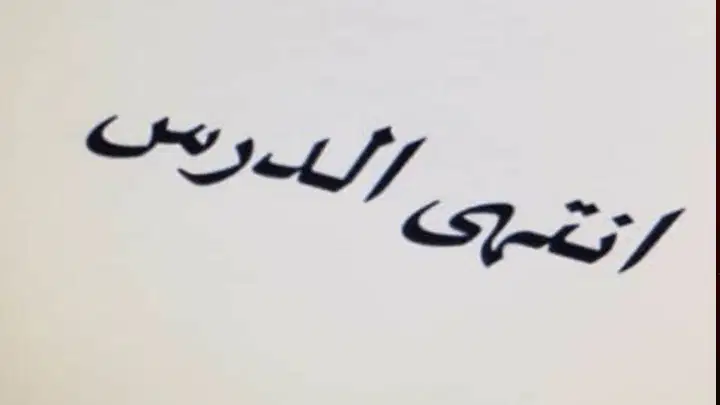 انتهى الدرس